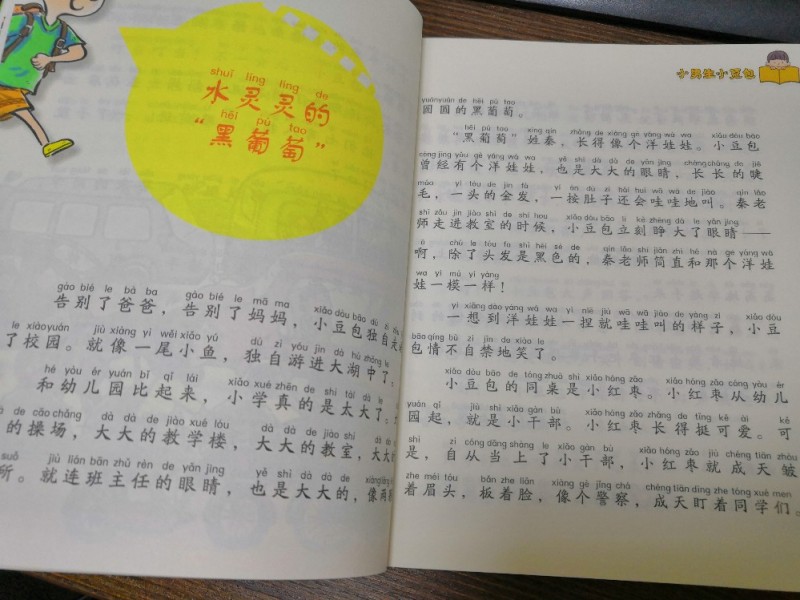 shuǐ líng líng de
水灵灵的
hēi pú tao
“黑葡萄”
gào bié le bà ba gào bié le mā ma xiǎo dòu bāo dú zì
告别了爸爸，告别了妈妈，小豆包独自
le xiào yuán jiù xiàng yì wěi xiǎo yú dú zì yóu jìn dà hú zhōng le
了校园。就像一尾小鱼，独自游进大湖中了。
hé yòu ér yuán bǐ qǐ lái xiǎo xué zhēn de shì tài dà le
和幼儿园比起来，小学真的是太大了。
dà de cāo chǎng dà dà de jiào xué lóu dà dà de jiào shì
的操场，大大的教学楼，大大的教室，大大
suǒ jiù lián bān zhǔ rèn de yǎn jing yě shì dà dà de xiàng liǎng
所。就连班主任的眼睛，也是大大的，像两
小男生小豆包
yuán yuán de hēi pú tao
圆圆的黑葡萄。
hēi pú tao xìng qín zhǎng de xiàng gè yáng wá wa xiǎo dòu bāo
“黑葡萄”姓秦，长得像个洋娃娃。小豆包
céng jīng yǒu gè yáng wá wa yě shì dà dà de yǎn jing cháng cháng de jié
曾经有个洋娃娃，也是大大的眼睛，长长的睫
máo yì tóu de jīn fà yí àn dù zi hái huì wā wā de jiào qín lǎo
毛，一头的金发，一按肚子还会哇哇地叫。秦老
shī zǒu jìn jiào shì de shí hou xiǎo dòu bāo lì kè zhēng dà le yǎn jing
师走进教室的时候，小豆包立刻睁大了眼睛——
ā chú le tóu fa shì hēi sè de qín lǎo shī jiǎn zhí hé nà ge yáng wá
啊，除了头发是黑色的，秦老师简直和那个洋娃
wa yì mú yí yàng
娃一模一样！
yì xiǎng dào yáng wá wa yì niē jiù wā wā jiào de yàng zi xiǎo dòu
一想到洋娃娃一捏就哇哇叫的样子，小豆
bāo qíng bú zì jīn de xiào le
包情不自禁地笑了。
xiǎo dòu bāo de tóng zhuō shì xiǎo hóng zǎo xiǎo hóng zǎo cóng yòu ér
小豆包的同桌是小红枣。小红枣从幼儿
yuán qǐ jiù shì xiǎo gàn bù xiǎo hóng zǎo zhǎng de tǐng kě ài kě
园起，就是小干部。小红枣长得挺可爱。可
shì zì cóng dāng shàng le xiǎo gàn bù xiǎo hóng zǎo jiù chéng tiān zhòu
是，自从当上了小干部，小红枣就成天皱
zhe méi tóu bǎn zhe liǎn xiàng gè jǐng chá chéng tiān dīng zhe tóng xué men
着眉头，板着脸，像个警察，成天盯着同学们。